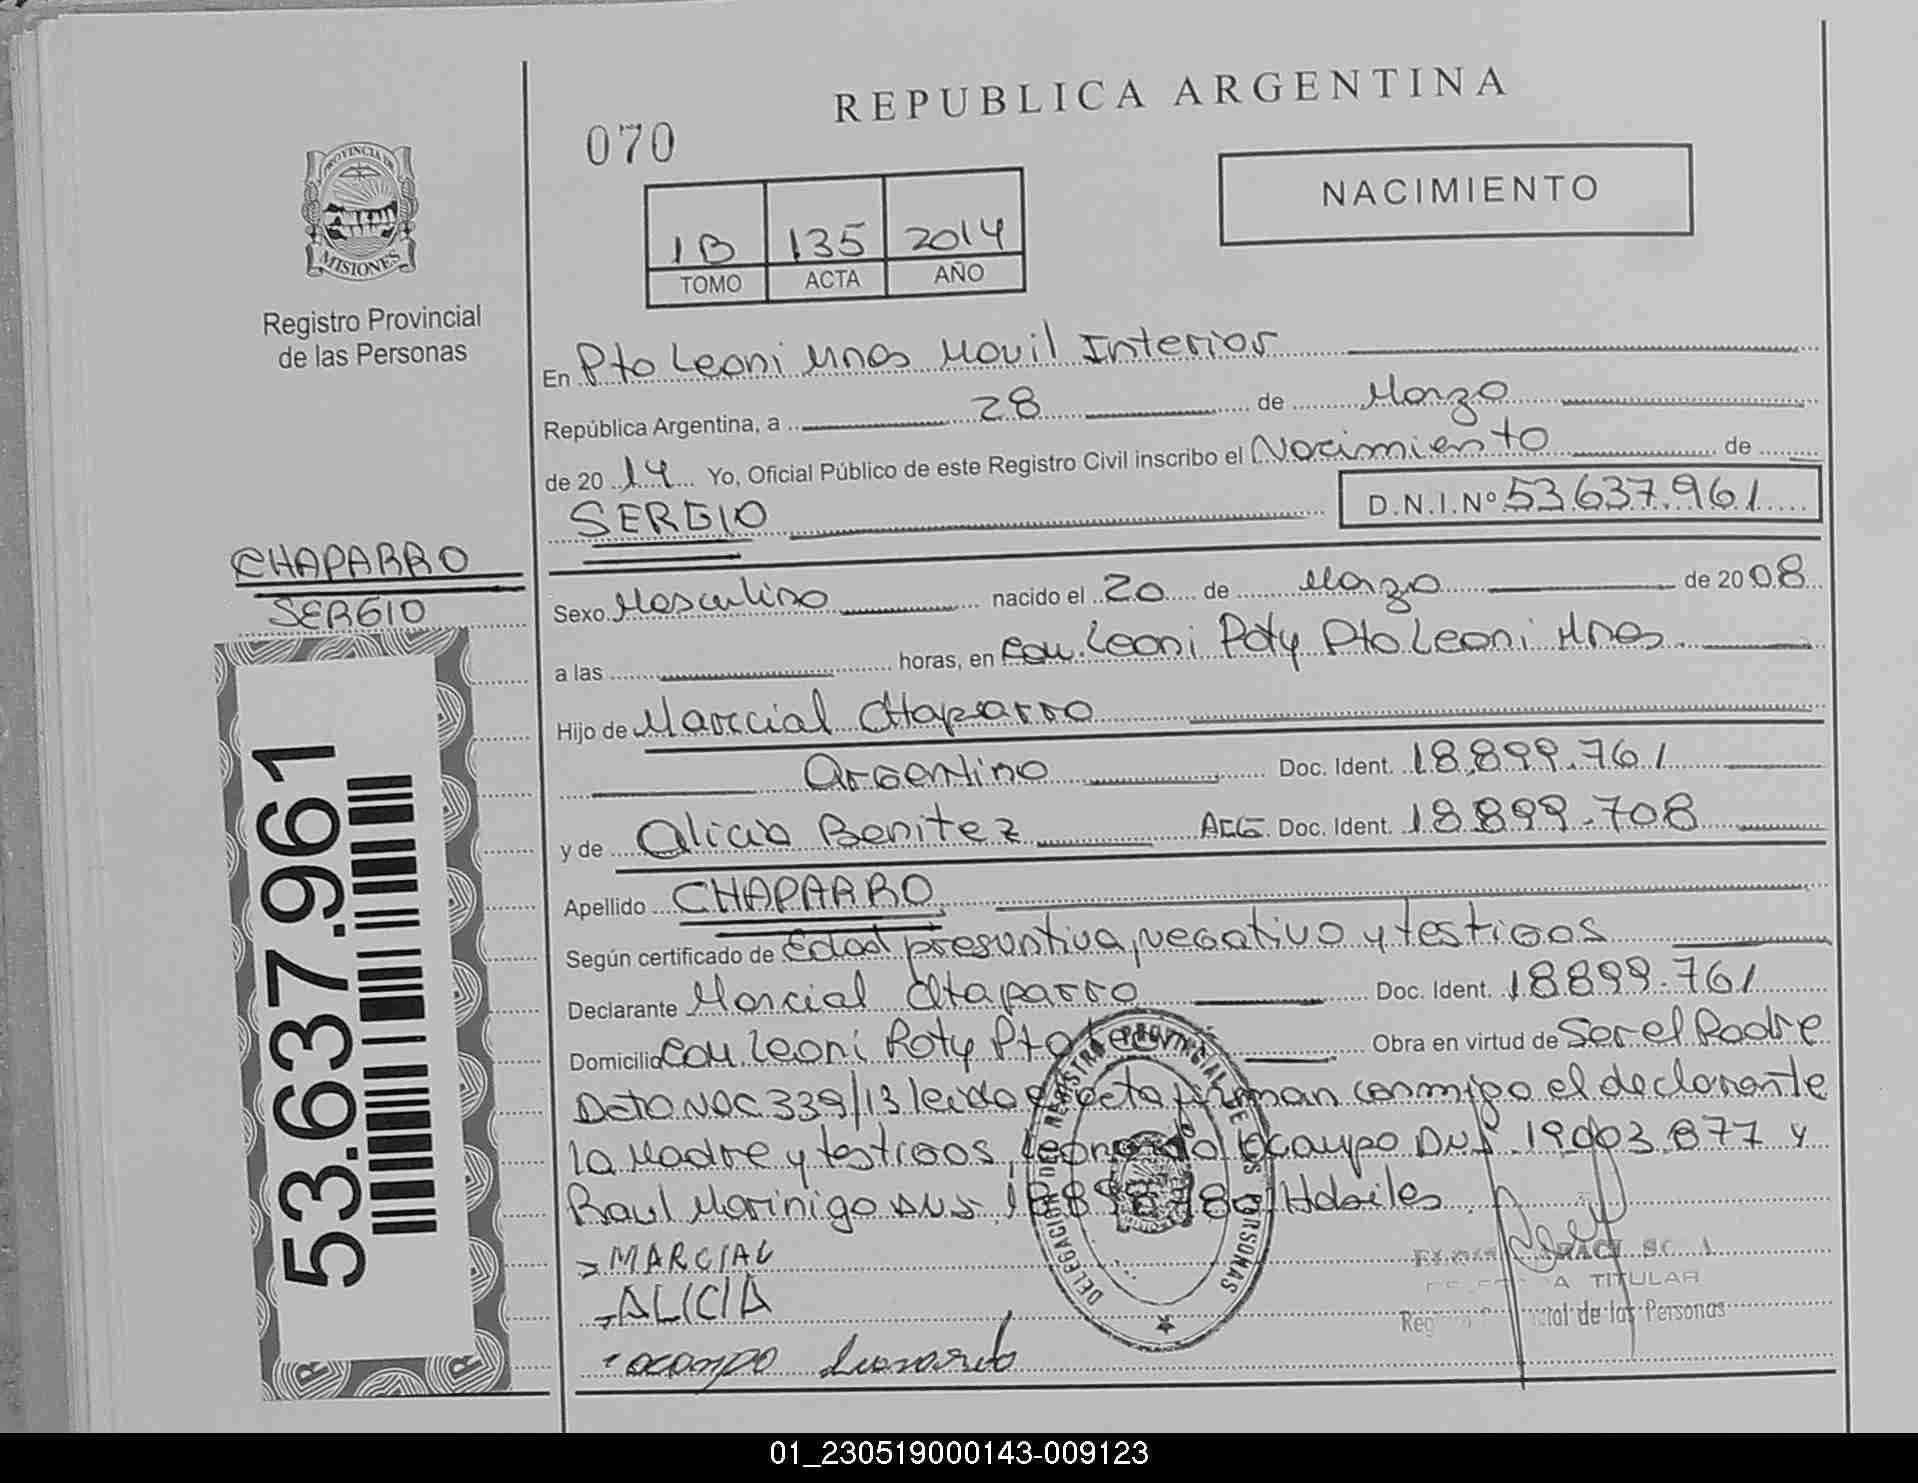 REPUBLICA ARGENTINA
070
NACIMIENTO
PROVINCIA DE
MISIONES
Registro Provincial
de las Personas
1B 135 2014
TOMO ACTA AÑO
En Pto Leoni Mnes Movil Interior
República Argentina, a 28 de Marzo
de 20 14 Yo, Oficial Público de este Registro Civil inscribo el Nacimiento de
SERGIO D.N.I.Nº 53.637.961
CHAPARRO
SERGIO
Sexo Masculino nacido el 20 de Marzo de 20 08
a las horas, en Com. Leoni Poty Pto Leoni Mnes.
Hijo de Marcial Chaparro
Argentino Doc. Ident. 18.899.761
y de Alicia Benitez ARG. Doc. Ident. 18.899.708
Apellido CHAPARRO
Según certificado de Edad presuntiva, negativo y testigos
Declarante Marcial Chaparro Doc. Ident. 18899.761
Domicilio Com Leoni Poty Pto Obra en virtud de Ser el Padre
Dcto Nac 339/13 leida el acta firman conmigo el declarante
la Madre y testigos, Leonardo Ocampo DNI. 19003.877 y
Raul Morinigo DNI Habiles
MARCIAL
ALICIA
ocampo
DELEGACION DEL REGISTRO PROVINCIAL DE LAS PERSONAS
TITULAR
de las Personas
53.637.961
01_230519000143-009123